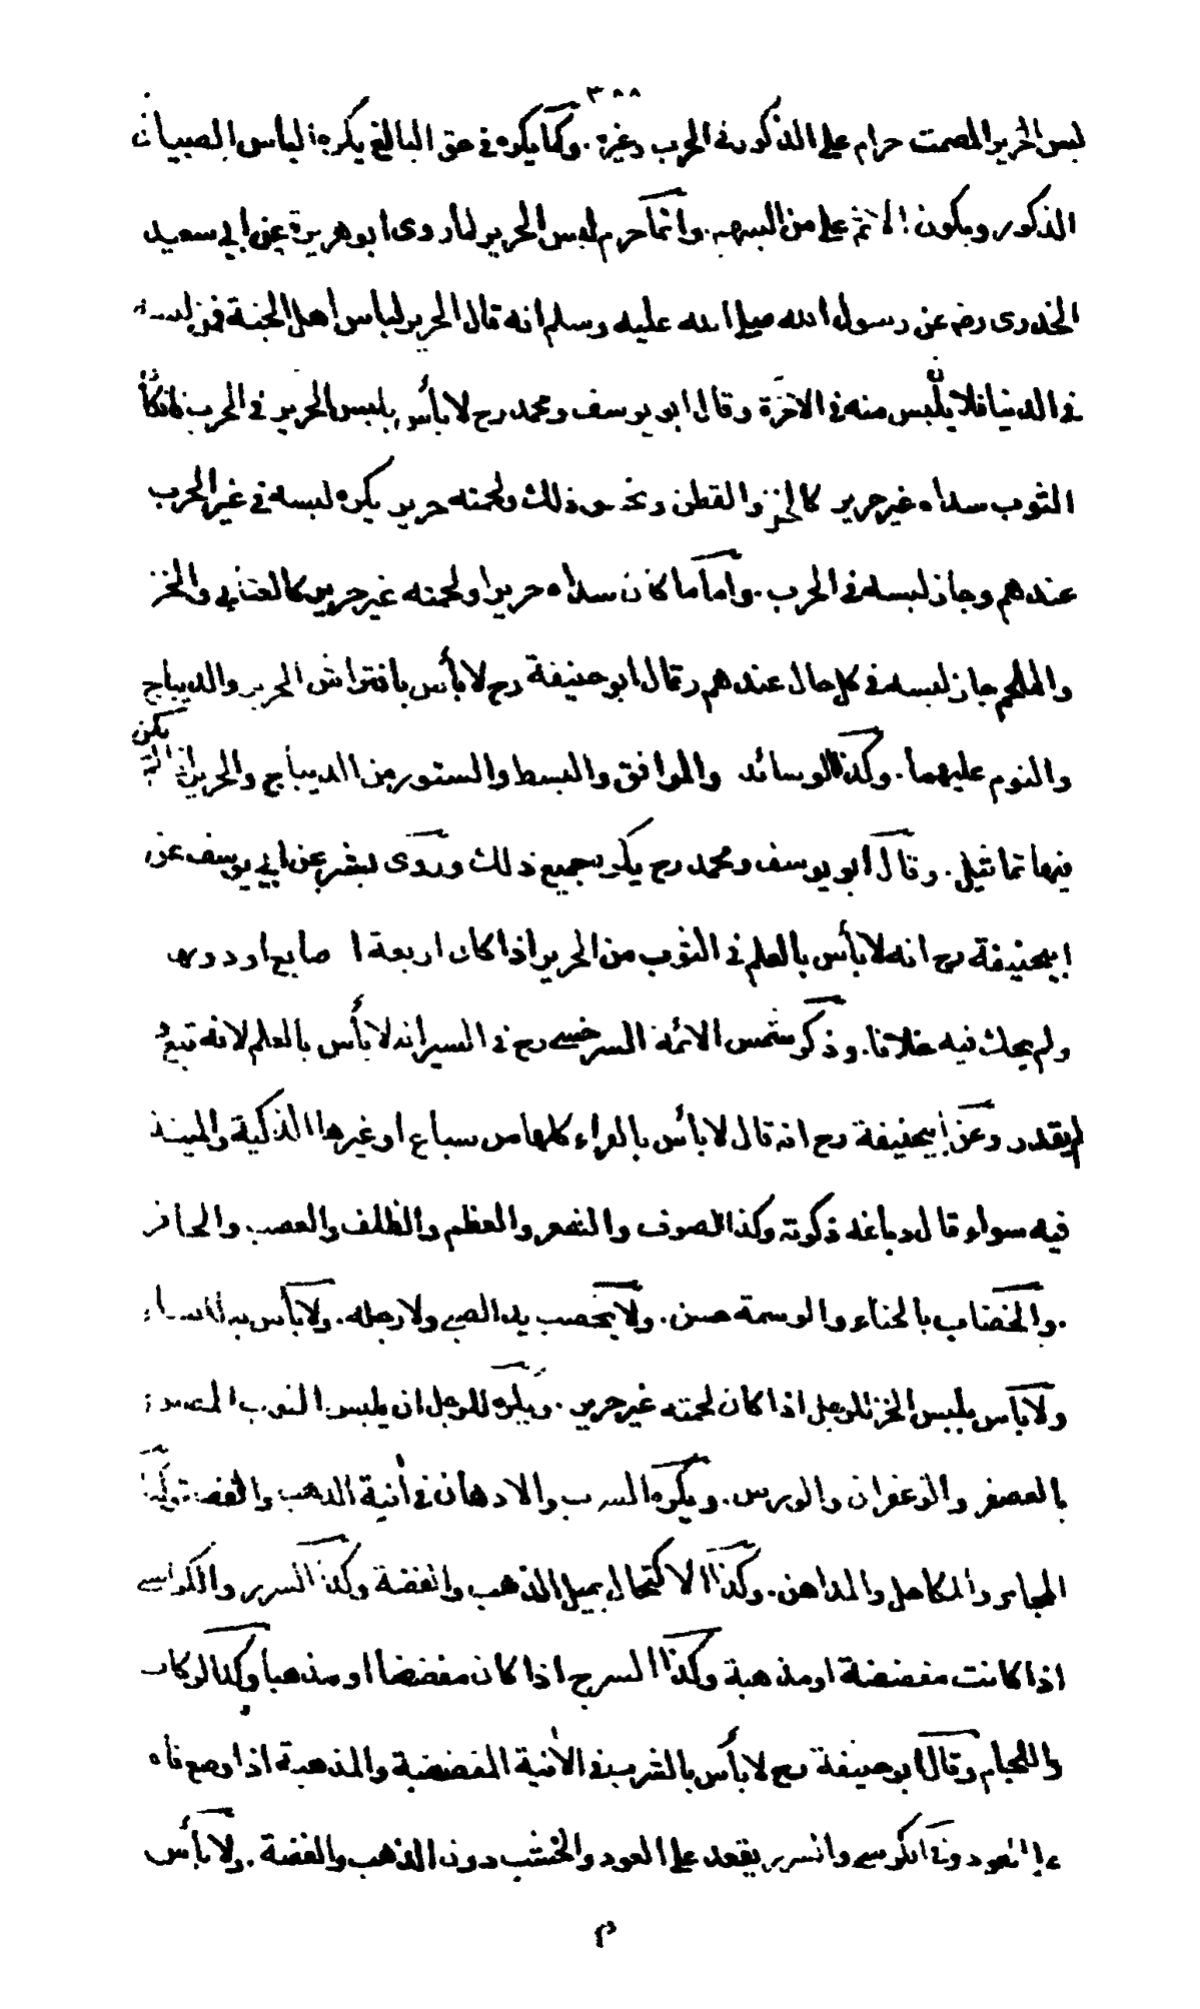 ٣٨٨
لبس الحرير المصمت حرام على الذكور فى الحرب وغيره . وكما يكره فى حق البالغ يكره الباس الصبيان
الذكور ويكون الاثم على من البسهم . وانما حرم لبس الحرير لما روى ابو هريرة عن ابي سعيد
الخدرى رضه عن رسول الله صلى الله عليه وسلم انه قال الحرير لباس اهل الجنة فمن لبسه
فى الدنيا فلا يلبس منه فى الاخرة وقال ابو يوسف ومحمد رح لا بأس بلبس الحرير فى الحرب
الثوب سداه غير حرير كالخز والقطن ونحو ذلك ولحمته حرير يكره لبسه فى غير الحرب
عندهم وجاز لبسه فى الحرب . واما ما كان سداه حريرا ولحمته غير حرير كالعتابي والخز
والملحم جاز لبسه فى كل حال عندهم وقال ابو حنيفة رح لا بأس بافتراش الحرير والديباج
والنوم عليهما . وكذا الوسائد والمرافق والبسط والستور من الديباج والحرير اذا لم يكن
فيها تماثيل . وقال ابو يوسف ومحمد رح يكره جميع ذلك وروى بشر عن ابي يوسف عن
ابيحنيفة رح انه لا بأس بالعلم فى الثوب من الحرير اذا كان اربعة ا صابع او دونها
ولم يحك فيه خلافا . وذكر شمس الائمة السرخسي رح فى السير انه لا بأس بالعلم لانه تبع
لم يقدر وعن ابيحنيفة رح انه قال لا بأس بالفراء كلها من سباع او غيرها الذكية والميتة
فيه سواء قال دباغه ذكوته وكذا الصوف والشعر والعظم والظلف والعصب والحافر
. والخضاب بالحناء والوسمة حسن . ولا يخصب يد الصبي ولا رجله . ولا بأس به للنساء
ولا بأس بلبس الخز للرجل اذا كان لحمته غير حرير . ويكره للرجل ان يلبس الثوب المصبوغ
بالعصفر والزعفران والورس . ويكره الشرب والادهان فى أنية الذهب والفضة وكذا
المجامر والمكاحل والمداهن . وكذا الاكتحال بميل الذهب والفضة وكذا السرير والكراسي
اذا كانت مفضضة او مذهبة وكذا السرج اذا كان مفضضا او مذهبا وكذا الركاب
واللجام وقال ابو حنيفة رح لا بأس بالشرب فى الأنية المفضضة والمذهبة اذا وضع فاه
على العود وفى الكرسي والسرير يقعد على العود والخشب دون الذهب والفضة . ولا بأس
م